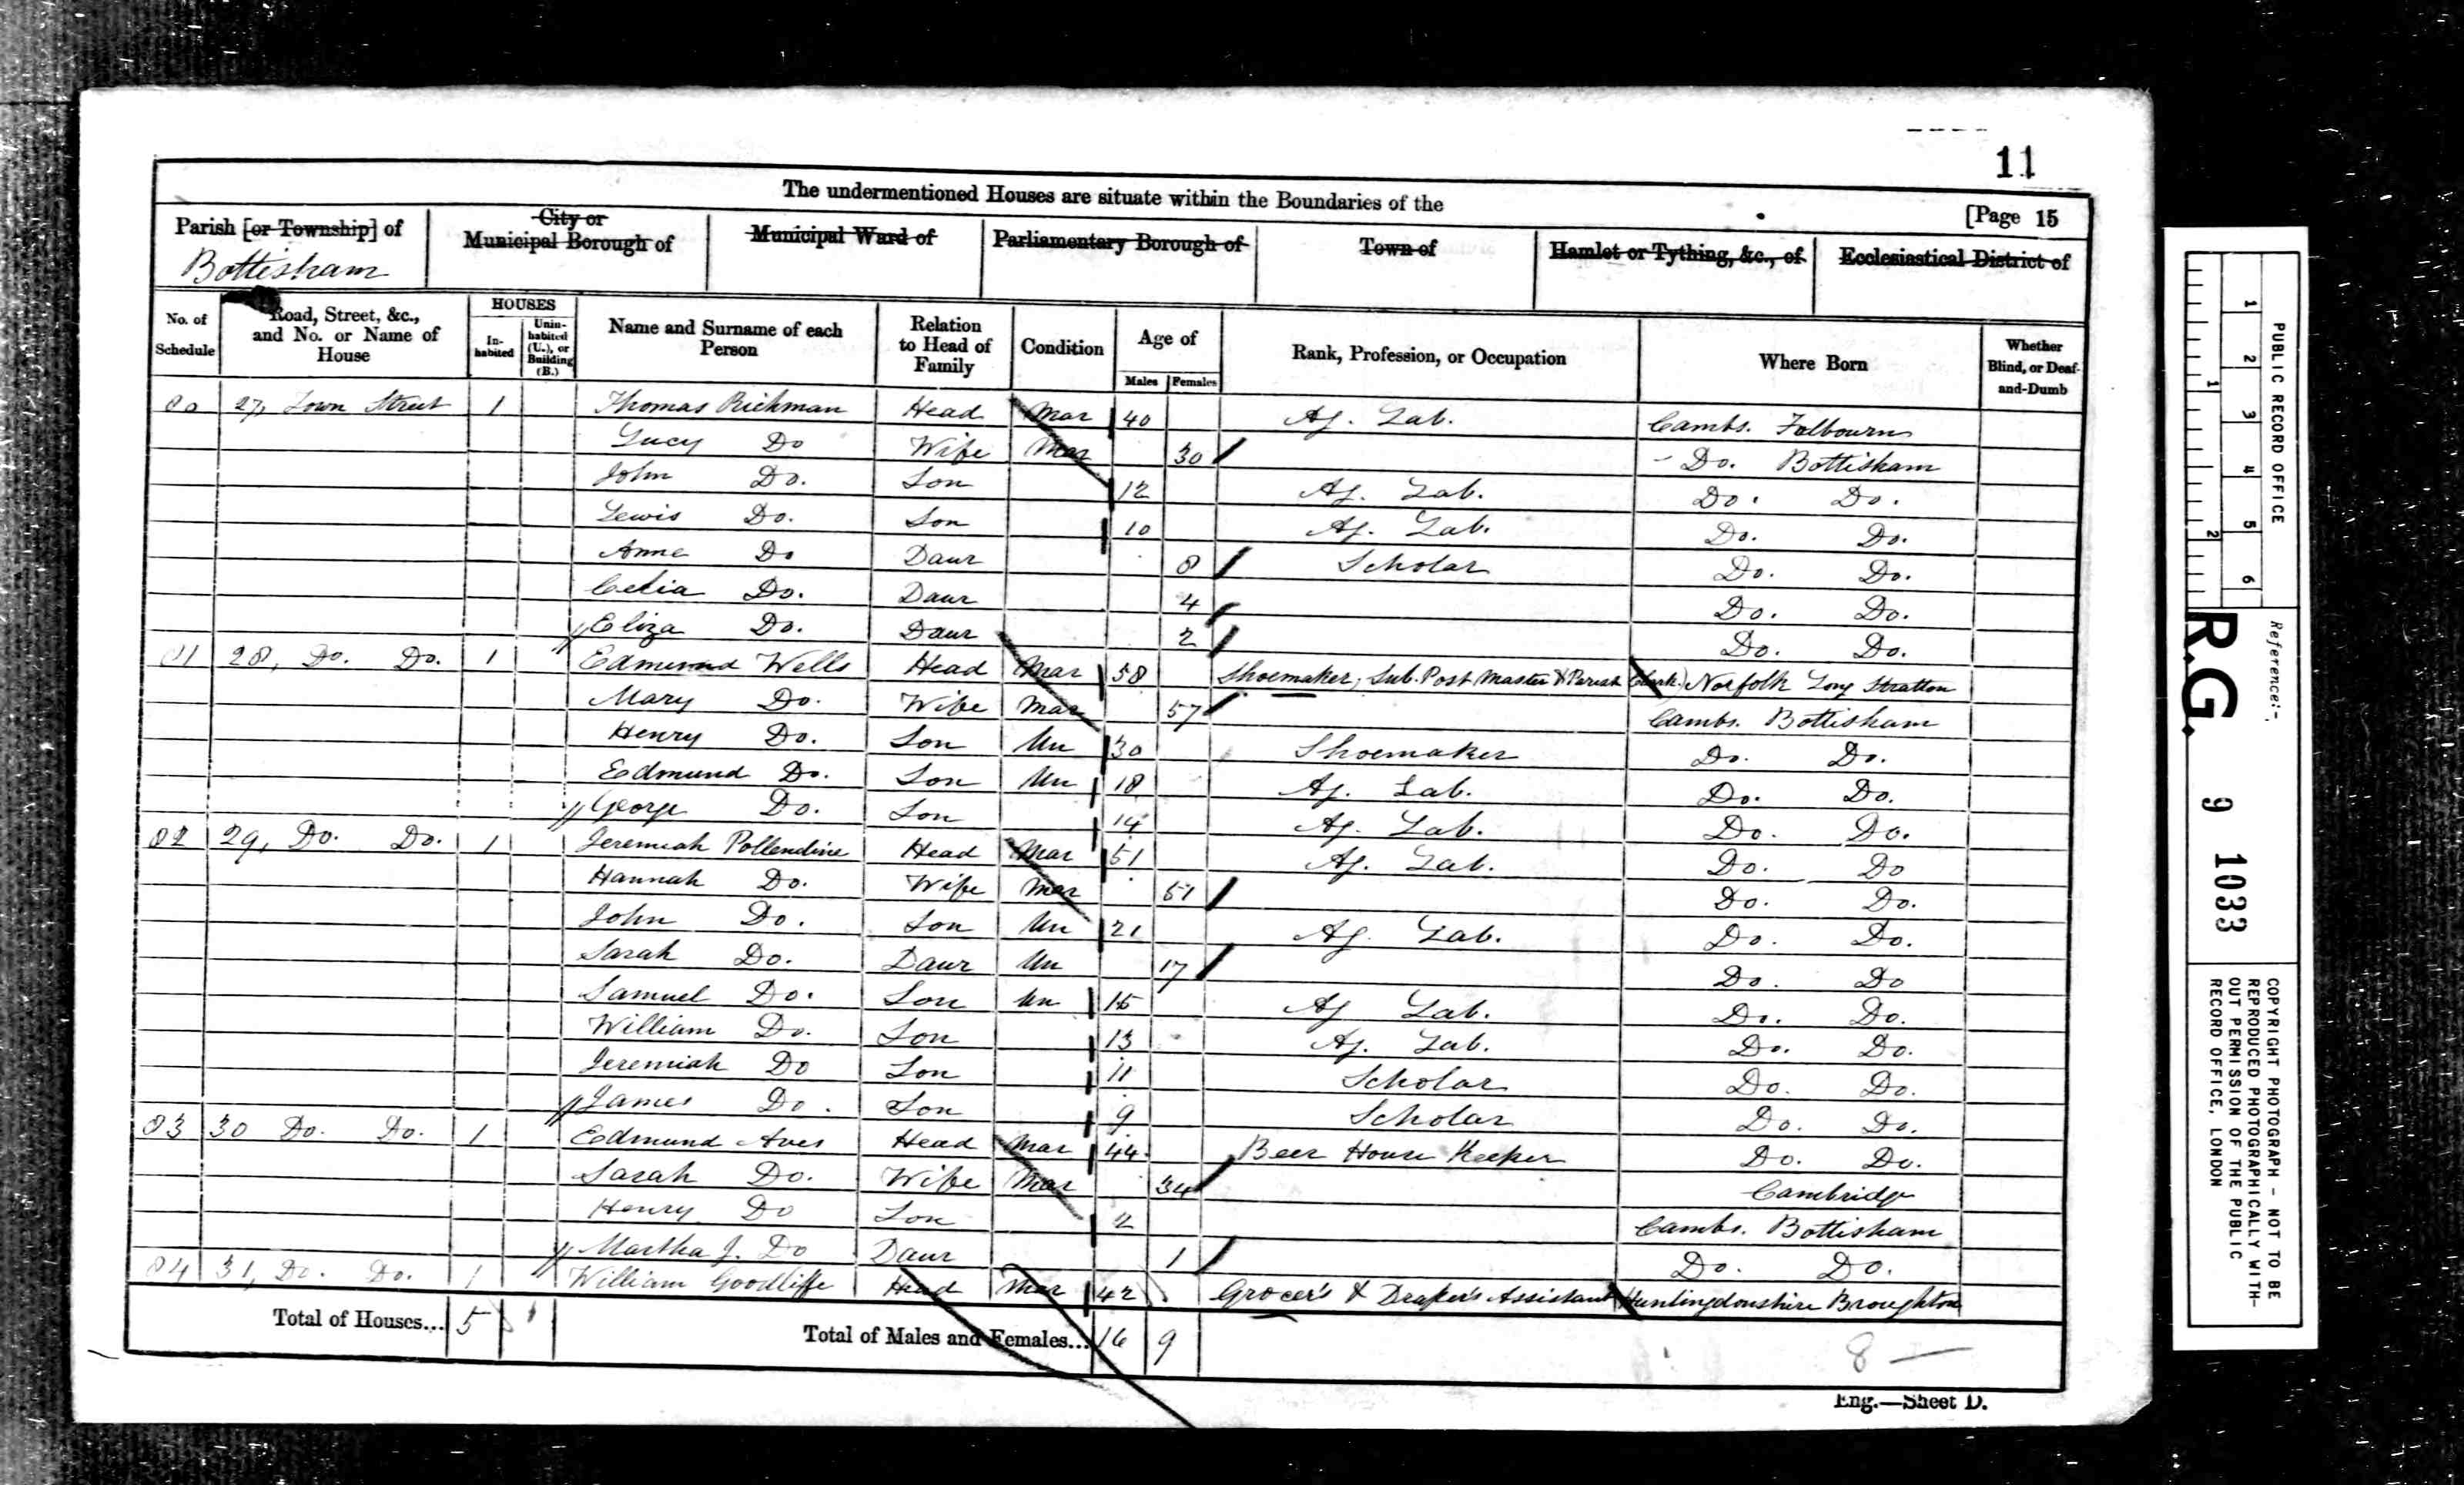 11
The undermentioned Houses are situate within the Boundaries of the
[Page 15
Parish [or Township] of
City or Municipal Borough of
Municipal Ward of
Parliamentary Borough of
Town of
Hamlet or Tything, &c., of
Ecclesiastical District of
Bottisham
No. of Schedule
Road, Street, &c., and No. or Name of House
HOUSES
In-habited
Unin-habited (U.), or Building (B.)
Name and Surname of each Person
Relation to Head of Family
Condition
Age of
Males
Females
Rank, Profession, or Occupation
Where Born
Whether Blind, or Deaf-and-Dumb
80 27, Town Street 1 Thomas Richman Head Mar 40 Ag. Lab. Cambs. Fulbourn
Lucy Do Wife Mar 30 Do. Bottisham
John Do. Son 12 Ag. Lab. Do. Do.
Lewis Do. Son 10 Ag. Lab. Do. Do.
Anne Do Daur 8 Scholar Do. Do.
Celia Do. Daur 4 Do. Do.
Eliza Do. Daur 2 Do. Do.
81 28, Do. Do. 1 Edmund Wells Head Mar 58 Shoemaker, Sub. Post Master & Parish Clerk) Norfolk Long Stratton
Mary Do. Wife Mar 57 Cambs. Bottisham
Henry Do. Son Un 30 Shoemaker Do. Do.
Edmund Do. Son Un 18 Ag. Lab. Do. Do.
George Do. Son 14 Ag. Lab. Do. Do.
82 29, Do. Do. 1 Jeremiah Pollendine Head Mar 51 Ag. Lab. Do. Do
Hannah Do. Wife Mar 51 Do. Do.
John Do. Son Un 21 Ag. Lab. Do. Do.
Sarah Do. Daur Un 17 Do. Do
Samuel Do. Son Un 15 Ag Lab. Do. Do.
William Do. Son 13 Ag. Lab. Do. Do.
Jeremiah Do Son 11 Scholar Do. Do.
James Do. Son 9 Scholar Do. Do.
83 30 Do. Do. 1 Edmund Aves Head Mar 44 Beer House Keeper Do. Do.
Sarah Do. Wife Mar 34 Cambridge
Henry Do Son 2 Cambs. Bottisham
Martha J. Do Daur 1 Do. Do.
84 31, Do. Do. 1 William Goodliffe Head Mar 42 Grocer's & Draper's Assistant Huntingdonshire Broughton
Total of Houses... 5
Total of Males and Females... 16 9
8
Eng.—Sheet D.
PUBLIC RECORD OFFICE
1 2 3 4 5 6
1 2
Reference:-
R.G. 9 1033
COPYRIGHT PHOTOGRAPH - NOT TO BE
REPRODUCED PHOTOGRAPHICALLY WITH-
OUT PERMISSION OF THE PUBLIC
RECORD OFFICE, LONDON